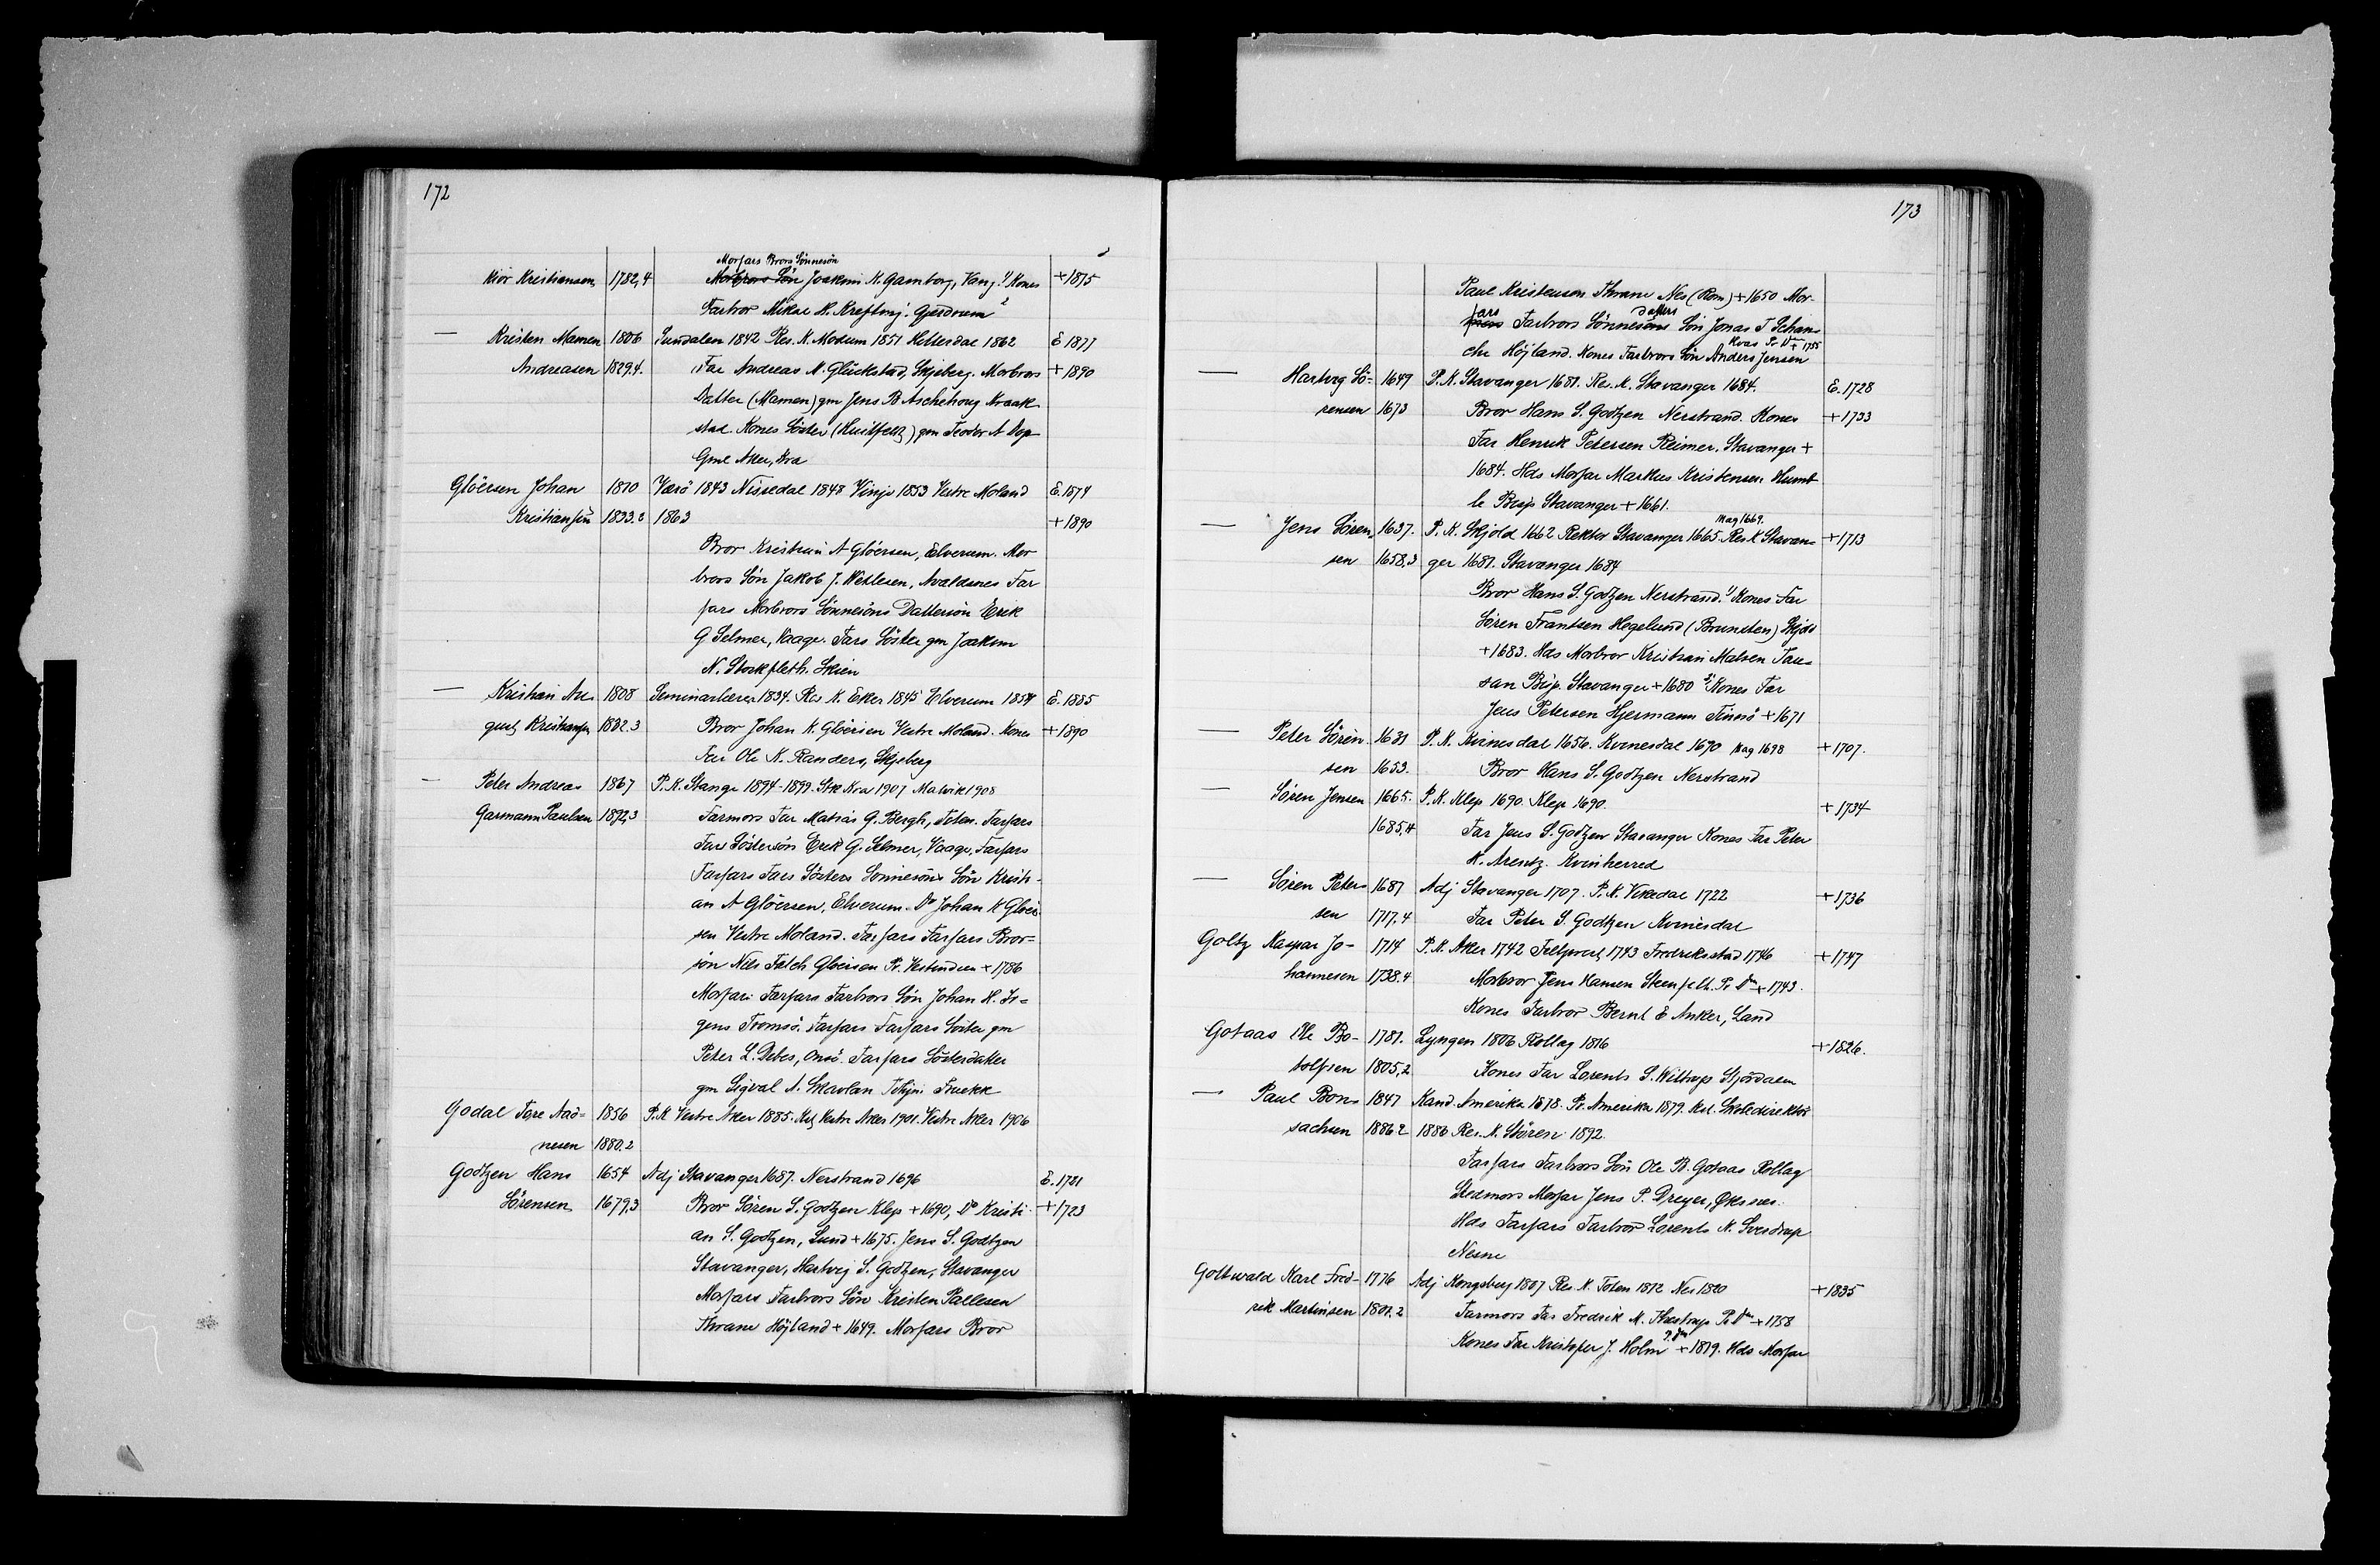 172
Morfars Brors Sönnesön
Kiör Kristiansen 1782,4 Morbrors Sön Joakim K. Gamborg, Vang. 1) Kones +1875
Farbror Mikal H. Krefting. Gjerdrum 2
— Kristen Mamen 1806 Sundalen 1842 Res. K. Modum 1851 Hitterdal 1862 E 1877
Andreasen 1829.4. Far Andreas N. Glückstad, Skjeberg. Morbrors +1890
Datter (Mamen) gm Jens B Aschehoug Kraak-
stad. Kones Söster (Huitfeldt) gm Teodor A Dop
Gml Aker, Kra
Glöersen Johan 1810 Værö 1843 Nissedal 1848 Vinje 1853 Vestre Moland E. 1874
Kristiansen 1833.2 1863 +1890
Bror Kristian A Glöersen, Elverum. Mor
brors Sön Jakob J. Wetlesen, Avaldsnes Far
fars Morbrors Sönnesöns Dattersön Erik
G Selmer, Vaage. Fars Söster gm Joakim
N. Stockfleth. Skien
— Kristian Au- 1808 Seminarlærer 1834. Res K. Eker 1845 Elverum 1854 E. 1885
gust Kristiansen 1832.3 Bror Johan K. Glöersen Vestre Moland. Kones +1890
Far Ole K. Randers, Skjeberg
— Peter Andreas 1867 P. K. Stange 1894-1899. Stk Kra 1907 Malvik 1908
Garmann Paulsen 1892,3 Farmors Far Matias G. Bergh, Toten. Farfars
Fars Söstersön Erik G. Selmer, Vaage, Farfars
Farfars Fars Sösters Sönnesöns Sön Kristi-
an A Glöersen, Elverum. Do Johan K Glöer-
sen Vestre Moland. Farfars Farfars Bror-
sön Nils Falch Glöersen Pr. Vestindien + 1786
Morfars Farfars Farbrors Sön Johan H. Ir-
gens Tromsö. Farfars Farfars Söster gm
Peter L. Debes, Onsö. Farfars Sösterdatter
gm Sigval A. Skavlan
Godal Tore Aad- 1856 P. K Vestre Aker 1885. Kst Vestre Aker 1901. Vestre Aker 1906
nesen 1880.2
Godtzen Hans 1654 Adj Stavanger 1687. Nerstrand 1696 E. 1721
Sörensen 1679,3 Bror Sören S. Godtzen Klep + 1690, Do Kristi- +1723
an S. Godtzen, Lund + 1675. Jens S. Godtzen
Stavanger, Hartvig S. Godtzen, Stavanger
Morfars Farbrors Sön Kristen Pallesen
Thrane Höjland + 1649. Morfars Bror
173
Paul Kristensen Thrane Nes (Rom) + 1650 Mor-
fars Farbrors Sönnesöns Datters Sön Jonas T Schan-
che Höjland. Kones Farbrors Sön Anders Jensen Kvas Pr Dm + 1755
— Hartvig Sö- 1649 P. K. Stavanger 1681. Res. K. Stavanger 1684. E. 1728
rensen 1673 Bror Hans S. Godtzen Nerstrand. Kones +1733
Far Henrik Petersen Reimer, Stavanger +
1684. Hds Morfar Markus Kristensen Humb
le Bisp Stavanger + 1661.
— Jens Sören- 1637. P. K. Skjold 1662 Rektor Stavanger 1665. Mag 1669. Res K Stavan- +1713
sen 1658,3 ger 1681. Stavanger 1684
Bror Hans S. Godtzen Nerstrand. 1) Kones Far
Sören Frantsen Hogelund (Brunsten) Skjold
+ 1683. Hds Morbror Kristian Madsen Tau-
san Bisp. Stavanger + 1680 2) Kones Far
Jens Petersen Hjermann Tinnö + 1671
— Peter Sören- 1631 P. K. Kvinesdal 1656. Kvinesdal 1670 Mag 1698 +1707.
sen 1653. Bror Hans S. Godtzen Nerstrand
— Sören Jensen 1665. P. K. Klep 1690. Klep 1690. +1734
1685,4 Far Jens S. Godtzen Stavanger Kones Far Peter
K. Arentz. Kvinherred
— Sören Peter- 1687 Adj Stavanger 1707. P. K. Vikedal 1722 +1736
sen 1717,4 Far Peter S. Godtzen Kvinesdal
Goltz Kaspar Jo- 1714 P. K. Aker 1742 Feltprest 1743 Frederiksstad 1746 +1747
hannesen 1738.4 Morbror Jens Hansen Steenfeldt. Pr Dm + 1743.
Kones Farbror Bernt E Anker, Land
Gotaas Ole Bo- 1781. Lyngen 1806 Rollag 1816 +1826.
tolfsen 1805,2 Kones Far Lorents S. Wittrup Stjördalen
— Paul Bons- 1847 Kand. Amerika 1878. Pr. Amerika 1879. Kst. Skoledirektör
sachsen 1886.2 1886 Res. K. Stören 1892.
Farfars Farbrors Sön Ole B. Gotaas Rollag
Stedmors Morfar Jens P. Dreyer, Öksnes.
Hds Farfars Farbror Lorents N. Sverdrup
Nesne
Gottwald Karl Fred- 1776 Adj Kongsberg 1807 Res. K. Toten 1812 Nes 1820 +1835
rik Martinsen 1801.2 Farmors Far Fredrik M. Thestrup Pr Dm + 1758
Kones Far Kristofer J. Holm P. Dm + 1819. Hds Morfar